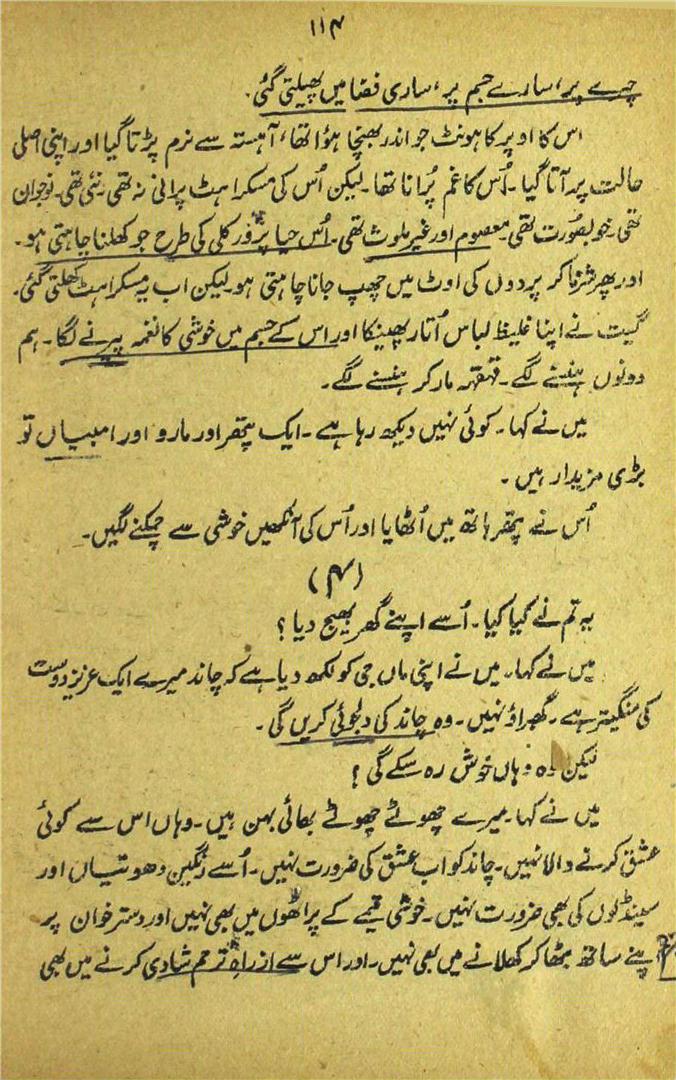 ۱۱۴
چہرے پر، سارے جسم پر، ساری فضا میں پھیلتی گئی۔
اس کا اوپر کا ہونٹ جو اندر بھنچا ہوٴا تھا، آہستہ سے نرم پڑتا گیا اور اپنی اصلی
حالت پر آتا گیا۔ اُس کا غم پُرانا تھا۔ لیکن اُس کی مسکراہٹ پرانی نہ تھی۔ نئی تھی۔ نوجوان
تھی۔ خوبصُورت تھی۔ معصوم اور غیر ملوث تھی۔ اُس حیا پرور کلی کی طرح جو کھلنا چاہتی ہو۔
اور پھر شرما کر پردوں کی اوٹ میں چھپ جانا چاہتی ہو۔ لیکن اب یہ مسکراہٹ کھلتی گئی۔
گیت نے اپنا غلیظ لباس اُتار پھینکا اور اس کے جسم میں خوشی کا نغمہ پیرنے لگا۔ ہم
دونوں ہنسنے لگے۔ قہقہہ مار کر ہنسنے لگے۔
میں نے کہا۔ کوئی نہیں دیکھ رہا ہے۔ ایک پتھر اور مارو اور امبیاں تو
بڑی مزیدار ہیں۔
اُس نے پتھر ہاتھ میں اُٹھایا اور اُس کی آنکھیں خوشی سے چمکنے لگیں۔
(۴)
یہ تم نے کیا کیا۔ اُسے اپنے گھر بھیج دیا؟
میں نے کہا۔ میں نے اپنی ماں جی کو لکھ دیا ہے کہ چاند میرے ایک عزیز دوست
کی منگیتر ہے۔ گھبراؤ نہیں۔ وہ چاند کی دلجوئی کریں گی۔
لیکن وہ وہاں خوش رہ سکے گی؟
میں نے کہا۔ میرے چھوٹے چھوٹے بھائی بہن ہیں۔ وہاں اس سے کوئی
عشق کرنے والا نہیں۔ چاند کو اب عشق کی ضرورت نہیں۔ اُسے رنگین دھوتیاں اور
سینڈلوں کی بھی ضرورت نہیں۔ خوشی قیمے کے پراٹھوں میں بھی نہیں اور دسترخوان پر
اپنے ساتھ بٹھا کر کھلانے میں بھی نہیں۔ اور اس سے ازراہِ ترحم شادی کرنے میں بھی